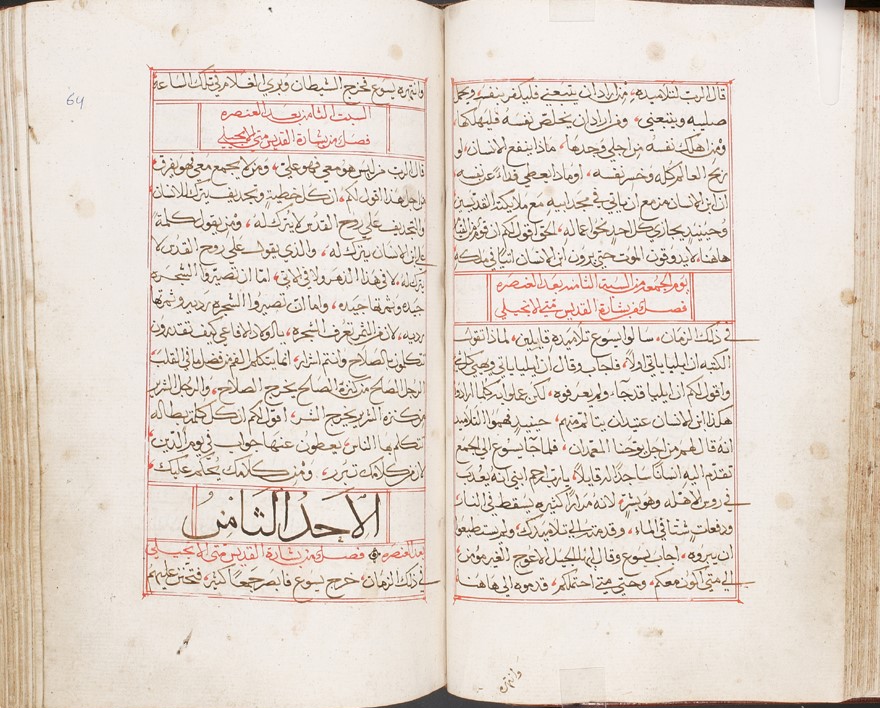 قال الرب لتلاميذه، من اراد ان يتبعني فليكفر بنفسه ويحمل
صليبه ويتبعني، ومن اراد ان يخلص نفسه فليهلكها
ومن اهلك نفسه من اجلي وجدها، ماذا ينفع الانسان لو
ربح العالم كله وخسر نفسه، او ماذا يعطي فداءً عن نفسه
ان ابن الانسان مزمع ان ياتي في مجد ابيه مع ملايكته القديسين
وحينيذٍ يجازي كل احدٍ نحو اعماله، الحق اقول لكم ان قوم من القيام
هاهنا، لا يدوقون الموت حتى يرون ابن الانسان اتيًا في ملكه
يوم الجمعه من السبت الثامنه بعد العنصره
فصل من بشارة القديس متى الانجيلي
في ذلك الزمان، سالوا يسوع تلاميذه قايلين، لماذا تقول
الكتبه ان ايليا ياتي اولًا، فاجاب وقال ان ايليا ياتي ويهيي كل شي
واقول لكم ان ايليا قد جاء ولم يعرفوه، لكن عملوا به كلما ارادوا
هكذا ابن الانسان عتيد ان يتالم منهم، حينيذٍ فهموا التلاميذ
انه قال لهم من اجل يوحنا المعمدان، فلما جا يسوع الى الجمع
تقدم اليه انسانًا ساجدًا له قايلًا، يا رب ارحم ابني انه يعذب
في روس الاهله وهو بشرٍ، لانه مرارًا كثيره يسقط في النار
ودفعات شتا في الماء، وقدمته الى تلاميدك، ولم يستطيعوا
ان يبروه، اجاب يسوع وقال ايها الجيل الاعوج الغير مومن،
الى متى اكون معكم، وحتى متى احتملكم، قدموه الى هاهنا
وانتهره
64
وانتهره يسوع فخرج الشيطان وبري الغلام في تلك الساعة
السبت الثامن بعد العنصره
فصل من بشارة القديس متى الانجيلي
قال الرب من ليس هو معي فهو علي، ومن لا يجمع معي فهو يفرق
من اجل هذا اقول لكم، ان كل خطيةٍ وتجديف يترك للانسان
والتجديف علي روح القدس لا يترك له، ومن يقول كلمةً
على ابن الانسان يترك له، والذي يقول علي روح القدس لا
يترك له، لا في هذا الدهر ولا في الاتي، اما ان تصيروا الشجره
جيده وثمرتها جيده، واما ان تصيروا الشجره رديه وثمرتها
رديه، لان من الثمره تعرف الشجره، يا اولاد الافاعي كيف تقدرون
تتكلمون بالصلاح وانتم اشرار، انما يتكلم الفم من فضل ما في القلب،
الرجل الصالح من كنزه الصالح يخرج الصلاح، والرجل الشرير
من كنزه الشرير يخرج الشر، اقول لكم ان كل كلمة بطاله
تتكلم بها الناس، يعطون عنها جواب في يوم الدين،
لان من كلامك تبرر، ومن كلامك يحكم عليك
الاحد الثامن
بعد العنصره فصل من بشارة القديس متى الانجيلي
في ذلك الزمان، خرج يسوع فابصر جمعًا كثيرً، فتحنن عليهم